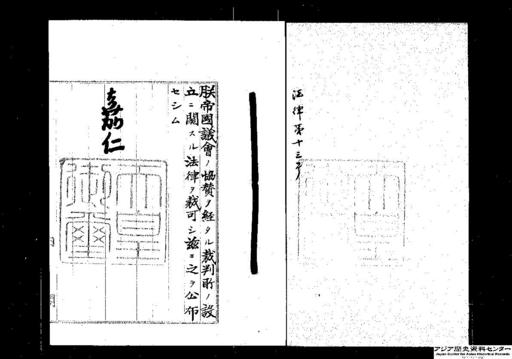 法律第十三号
朕帝國議會ノ協賛ヲ經タル裁判所ノ設
立ニ關スル法律ヲ裁可シ茲ニ之ヲ公布
セシム
嘉仁
天皇
御璽
アジア歴史資料センター
Japan Center for Asian Historical Records